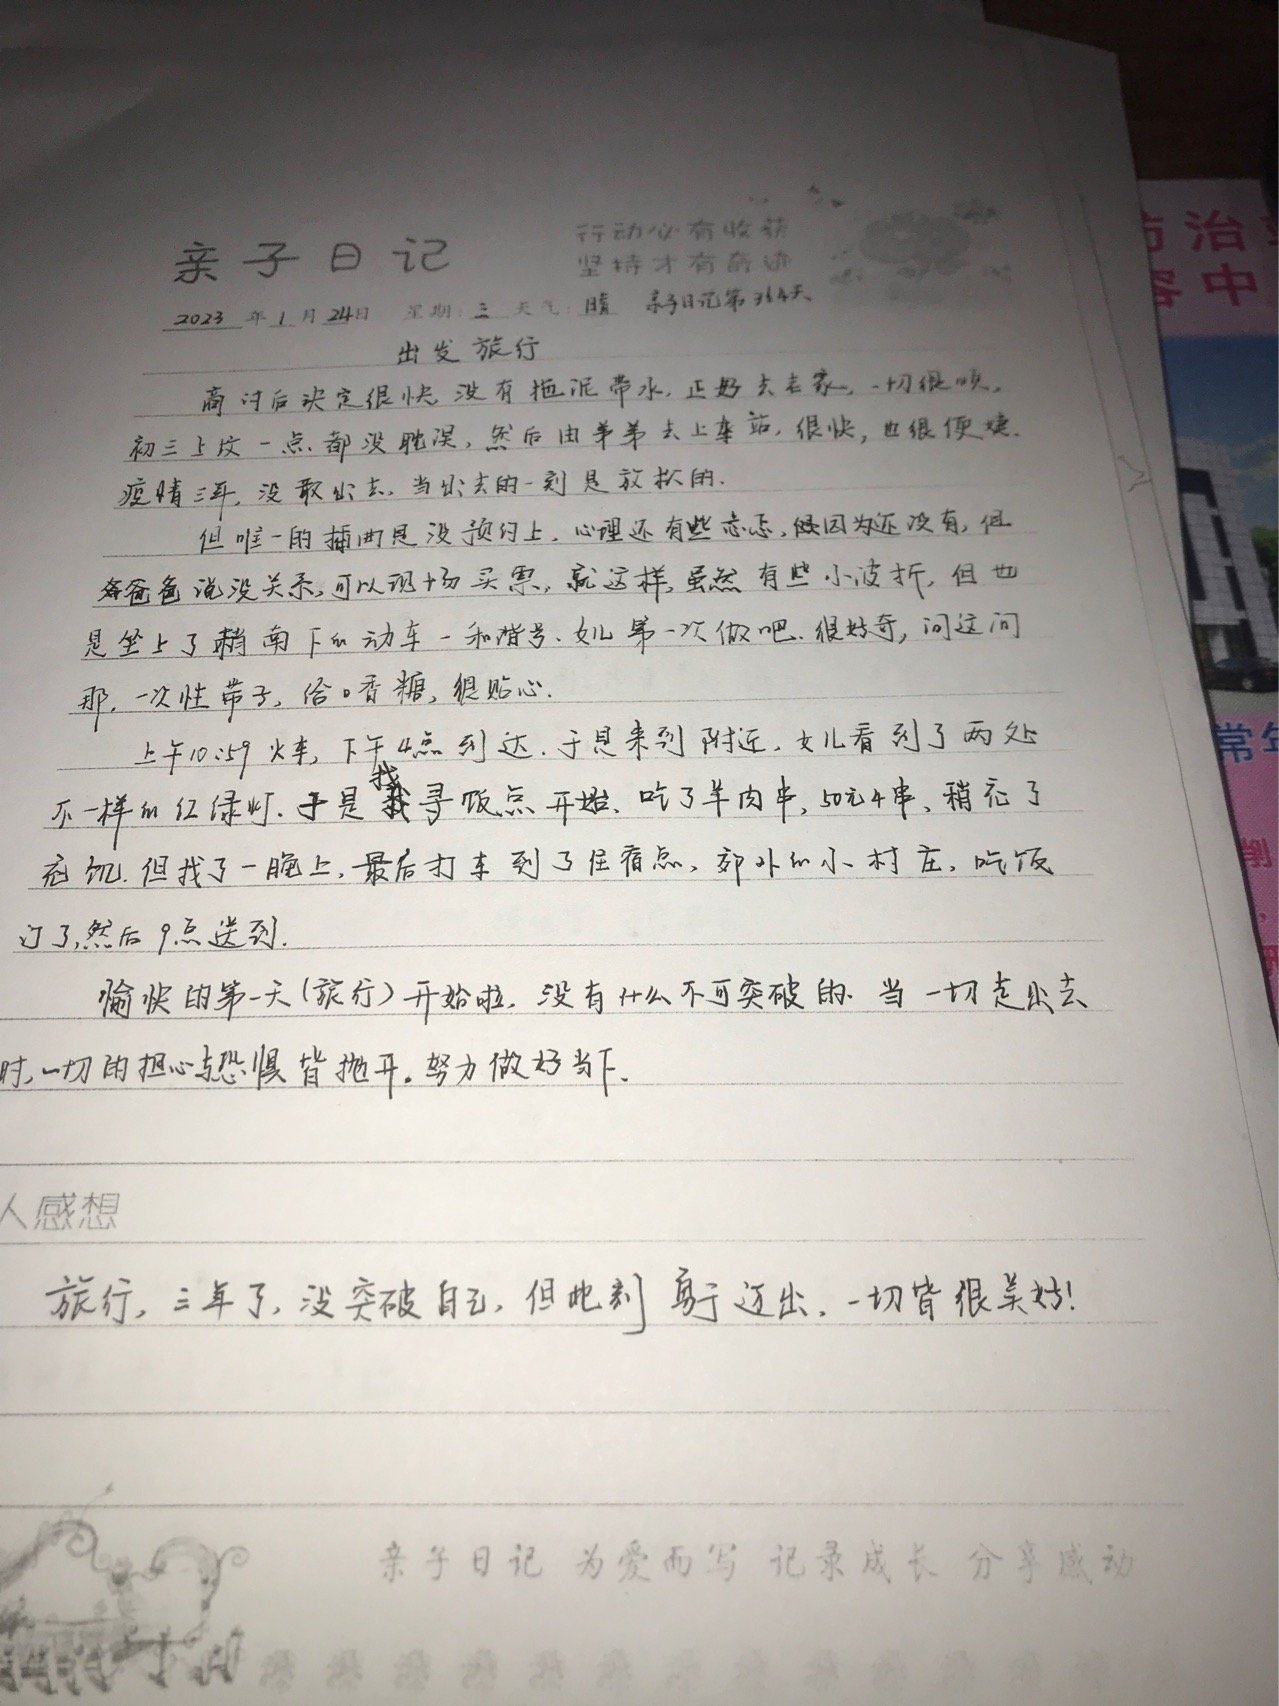 亲子日记
行动必有收获
坚持才有奇迹
2023年1月24日 星期:三 天气:晴 亲子日记第364天
出发旅行
商讨后决定很快,没有拖泥带水,正好去老家,一切很顺,
初三上坟一点都没耽误,然后由弟弟去上车站,很快,也很便捷.
疫情三年,没敢出去,当出去的一刻是放松的.
但唯一的插曲是没预约上,心理还有些忐忑,候因为还没有,但
爸爸说没关系,可以现场买票,就这样,虽然有些小波折,但也
是坐上了 南下的动车-和谐号.女儿第一次做吧.很好奇,问这问
那,一次性带子,给口香糖,很贴心.
上午10:59火车,下午4点到达.于是来到附近,女儿看到了两处
不一样的红绿灯.于是找寻饭点开始,吃了羊肉串,50元4串,稍充了
充饥.但找了一晚上,最后打车到了住宿点,郊外的小村庄,吃饭
订了,然后9点送到.
愉快的第一天(旅行)开始啦,没有什么不可突破的.当一切走出去
时,一切的担心与恐惧皆抛开。努力做好当下.
人感想
旅行,三年了,没突破自己,但此刻 迈出,一切皆很美好!
亲子日记 为爱而写 记录成长 分享感动
治
容中
常年